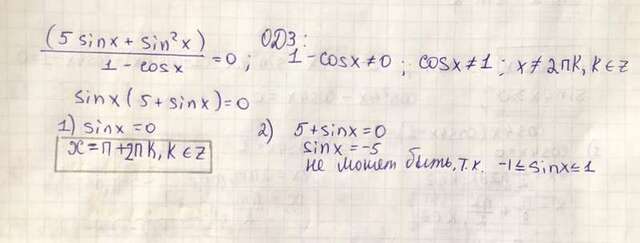 (5 sinx + sin²x) / (1 - cosx) = 0 ; ОДЗ: 1 - cosx ≠ 0 ; cosx ≠ 1 ; x ≠ 2πK, K ∈ Z
sinx (5 + sinx) = 0
1) sinx = 0
x = π + 2πK, K ∈ Z
2) 5 + sinx = 0
sinx = -5
не может быть, т.к. -1 ≤ sinx ≤ 1